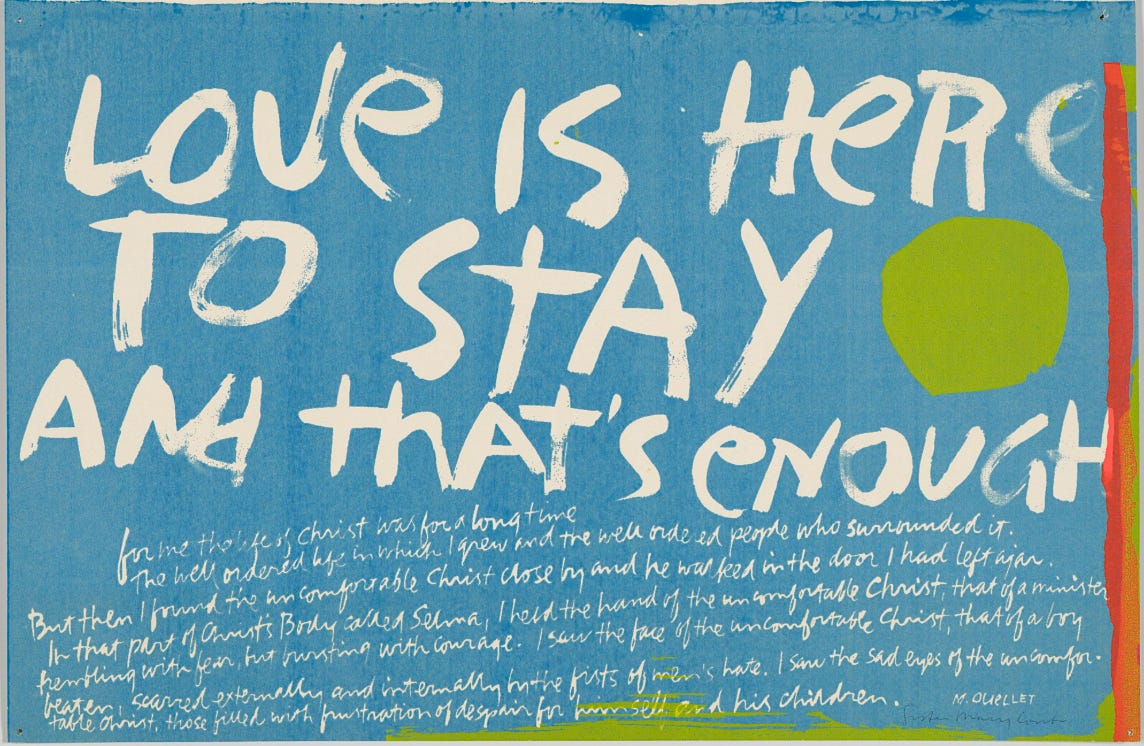 LOVE IS HERE
TO STAY
AND THAT'S ENOUGH
for me the life of Christ was for a long time
The well ordered life in which I grew and the well ordered people who surrounded it.
But then I found the uncomfortable Christ close by and he walked in the door I had left ajar.
In that part of Christ's Body called Selma, I held the hand of the uncomfortable Christ, that of a minister
trembling with fear, but bursting with courage. I saw the face of the uncomfortable Christ, that of a boy
beaten, scarred externally and internally by the fists of men's hate. I saw the sad eyes of the uncomfor-
table Christ, those filled with frustration of despair for himself and his children.
M. OUELLET
Sister Mary Corita